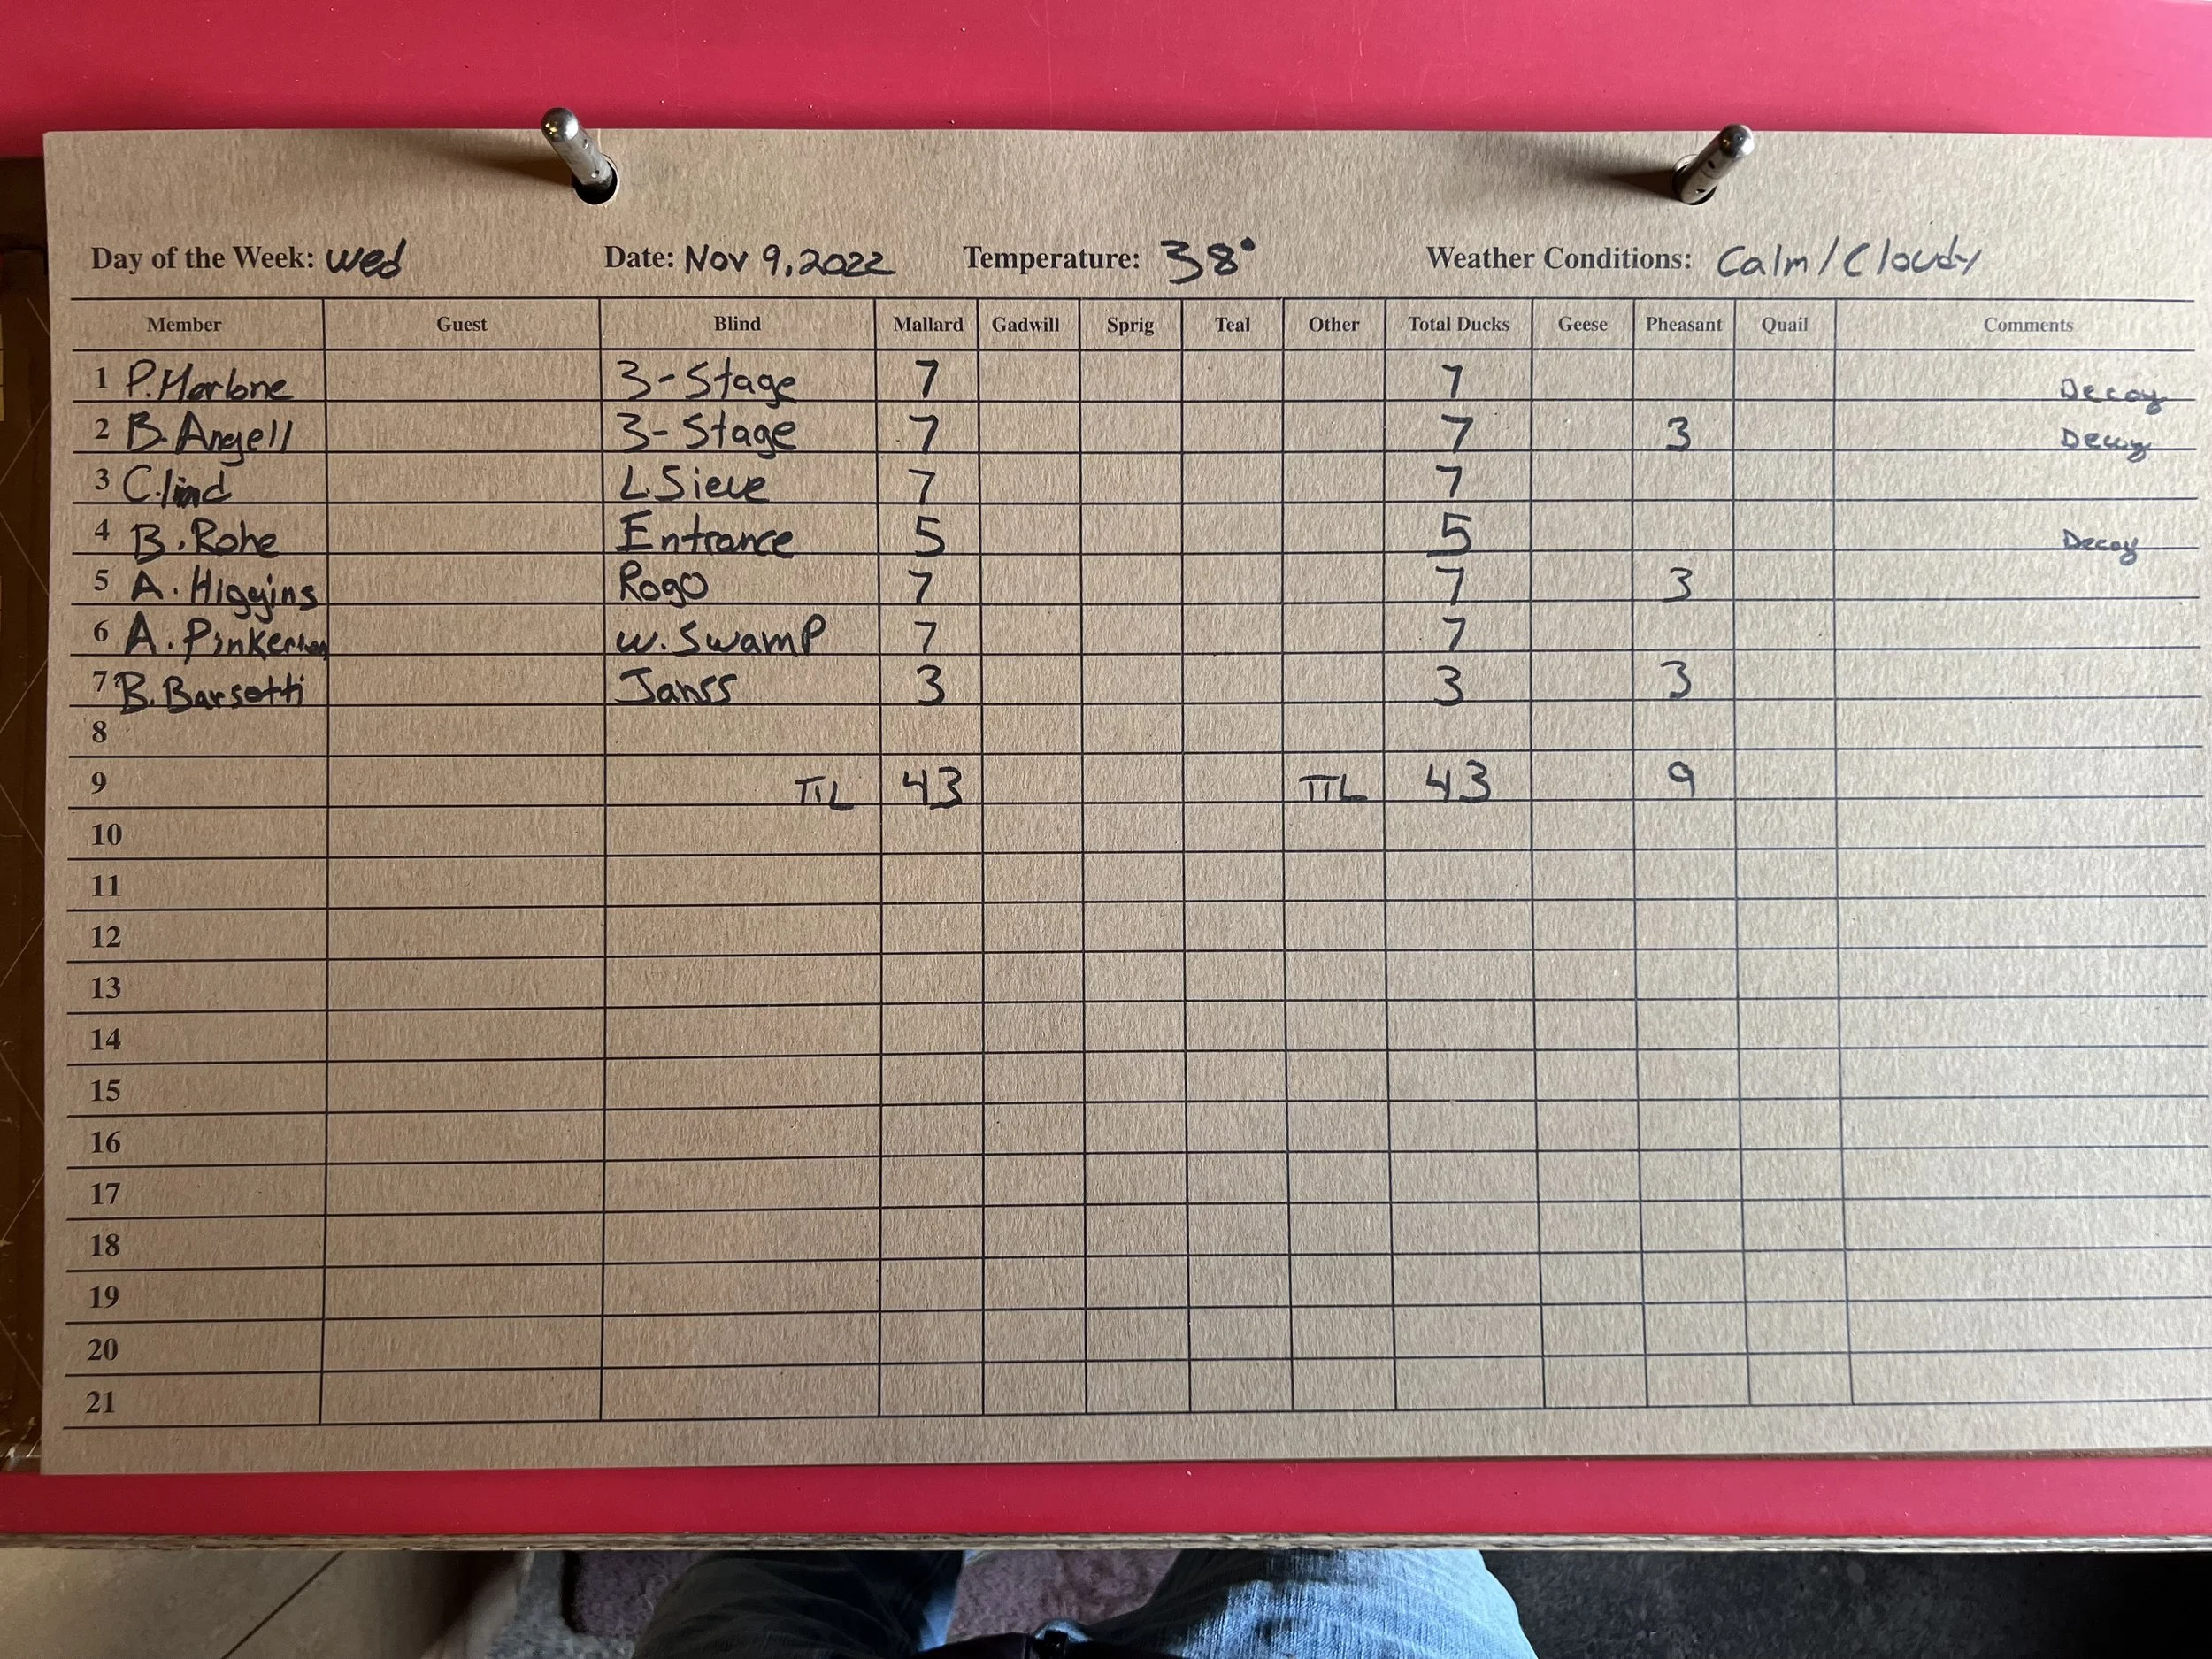 Day of the Week: Wed Date: Nov 9, 2022 Temperature: 38° Weather Conditions: Calm/Cloudy
Member Guest Blind Mallard Gadwill Sprig Teal Other Total Ducks Geese Pheasant Quail Comments
1 P. Merlone 3-Stage 7 7 Decoy
2 B. Angell 3-Stage 7 7 3 Decoy
3 C. lind L Sieve 7 7
4 B. Rohe Entrance 5 5 Decoy
5 A. Higgins Rogo 7 7 3
6 A. Pinkerton W. Swamp 7 7
7 B. Barsotti Janss 3 3 3
8
9 TTL 43 TTL 43 9
10
11
12
13
14
15
16
17
18
19
20
21